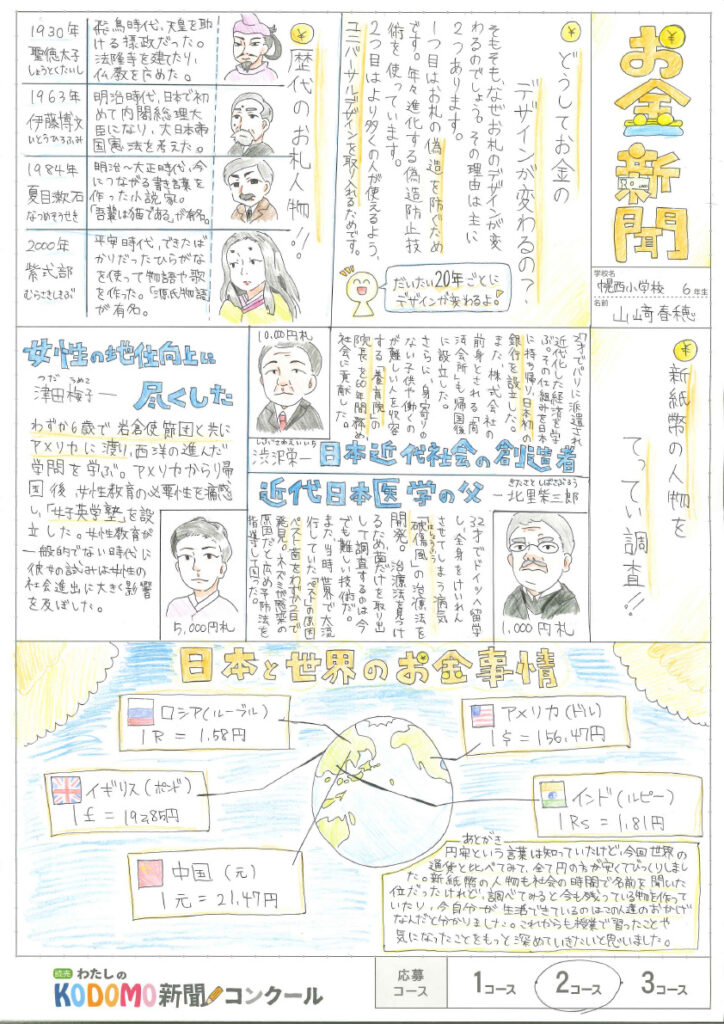 お金新聞
学校名
幌西小学校 6年生
名前
山﨑春穂
どうしてお金の
デザインが変わるの?
そもそも、なぜお札のデザインが変
わるのでしょう。その理由は主に
2つあります。
1つ目はお札の偽造を防ぐため
です。年々進化する偽造防止技
術を使っています。
2つ目はより多くの人が使えるよう、
ユニバーサルデザインを取り入れるためです。
だいたい20年ごとに
デザインが変わるよ。
歴代のお札人物!!
1930年
聖徳太子
しょうとくたいし
飛鳥時代、天皇を助
ける摂政だった。
法隆寺を建てたり、
仏教を広めた。
1963年
伊藤博文
いとうひろふみ
明治時代、日本で初
めて内閣総理大
臣になり、大日本帝
国憲法を考えた。
1984年
夏目漱石
なつめそうせき
明治~大正時代、今
につながる書き言葉を
作った小説家。
「吾輩は猫である」が有名。
2000年
紫式部
むらさきしきぶ
平安時代、できたば
かりだったひらがな
を使って物語や歌
を作った。「源氏物語」
が有名。
新紙幣の人物を
てってい調査!!
10,000円札
しぶさわえいいち
渋沢栄一
日本近代社会の創造者
27才でパリに派遣され
近代化した経済を学
ぶ。その仕組みを日本
に持ち帰り、日本初の
銀行を設立した。
また、株式会社の
前身とされる「商
法会所」も帰国後
に設立した。
さらに、身寄りの
ない子供や働くの
が難しい人を収容
する「養育院」の
院長を60年間務め
社会に貢献した。
近代日本医学の父
きたさとしばさぶろう
ー北里柴三郎
1,000円札
32才でドイツへ留学
し、全身をけいれん
させてしまう病気
はしょうふう
「破傷風」の治療法を
開発。治療法を見つけ
るため菌だけを取り出
して調査するのは今
でも難しい技術だ。
また、当時世界で大流
行していた「ペスト」の原因
ペスト菌をわずか2日で
発見。ネズミが感染の
原因だと広め予防法を
指導して回った。
女性の地位向上に
尽くした
つだ うめこ
津田梅子ー
わずか6歳で岩倉使節団と共に
アメリカに渡り、西洋の進んだ
学問を学ぶ。アメリカから帰
国後、女性教育の必要性を痛感
し、「女子英学塾」を設
立した。女性教育が
一般的でない時代に
彼女の試みは女性の
社会進出に大きく影響
を及ぼした。
5,000円札
日本と世界のお金事情
ロシア(ルーブル)
1R = 1.58円
アメリカ(ドル)
1$ = 156.47円
イギリス(ポンド)
1£ = 192.85円
インド(ルピー)
1Rs = 1.81円
中国(元)
1元 = 21.47円
あとがき
円安という言葉は知っていたけど、今回世界の
通貨とくらべてみて、全て円の方が安くてびっくりしまし
た。新紙幣の人物も社会の時間で名前を聞いた
位だったけれど、調べてみると今も残っている物を作って
いたり、今自分が生活できているのはこの人達のおかげ
なんだと分かりました。これからも授業で習ったことや
気になったことをもっと深めていきたいと思いました。
読売 わたしの
KODOMO新聞コンクール
応募
コース
1コース
2コース
3コース